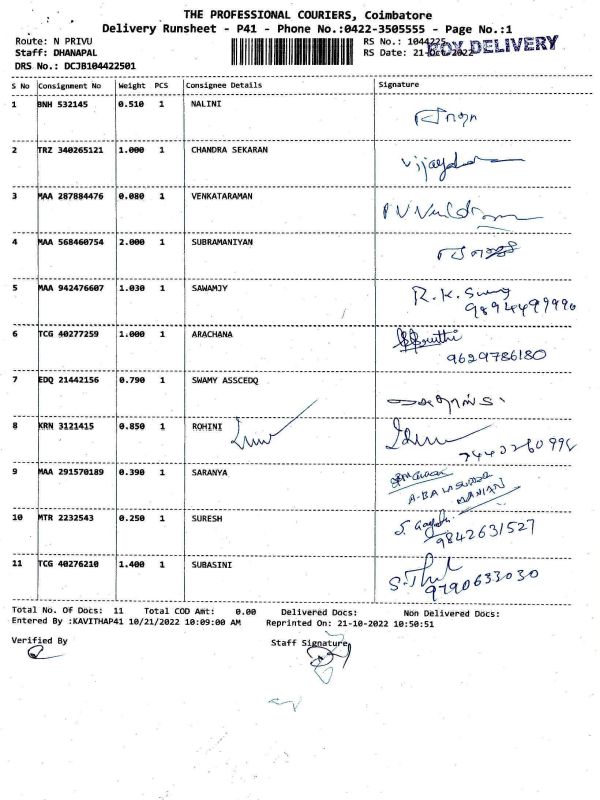 THE PROFESSIONAL COURIERS, Coimbatore
Delivery Runsheet - P41 - Phone No.:0422-3505555 - Page No.:1
Route: N PRIVU
RS No.: 1044225
Staff: DHANAPAL
RS Date: 21-Oct-2022
BOY DELIVERY
DRS No.: DCJB104422501
S No Consignment No Weight PCS Consignee Details Signature
1 BNH 532145 0.510 1 NALINI
2 TRZ 340265121 1.000 1 CHANDRA SEKARAN
3 MAA 287884476 0.080 1 VENKATARAMAN
4 MAA 568460754 2.000 1 SUBRAMANIYAN
5 MAA 942476607 1.030 1 SAWAMJY R.K.
9894499990
6 TCG 40277259 1.000 1 ARACHANA
9629786180
7 EDQ 21442156 0.790 1 SWAMY ASSCEDQ
8 KRN 3121415 0.850 1 ROHINI
9 MAA 291570189 0.390 1 SARANYA
10 MTR 2232543 0.250 1 SURESH
9842631527
11 TCG 40276210 1.400 1 SUBASINI
9790633030
Total No. Of Docs: 11 Total COD Amt: 0.00 Delivered Docs: Non Delivered Docs:
Entered By :KAVITHAP41 10/21/2022 10:09:00 AM Reprinted On: 21-10-2022 10:50:51
Verified By Staff Signature